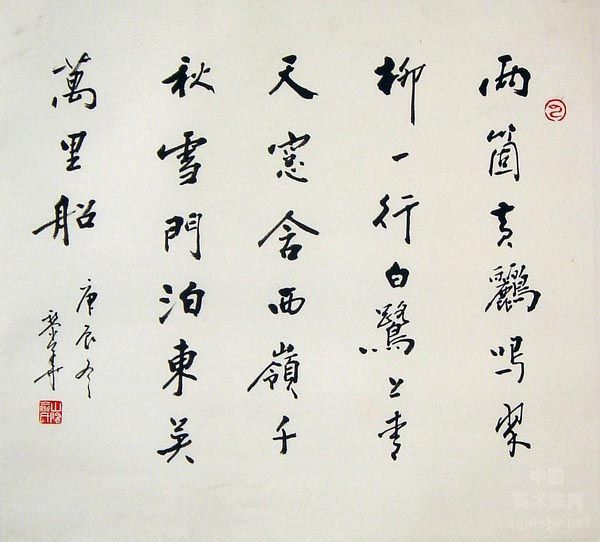 兩箇黃鸝鳴翠
柳一行白鷺上青
天窓含西嶺千
秋雪門泊東吳
萬里船
庚辰冬
中国
美术家网
zgmsjw.net